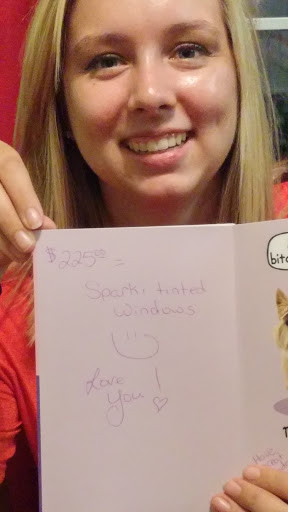 $225.00 =
Spark: tinted
windows
Love
You!